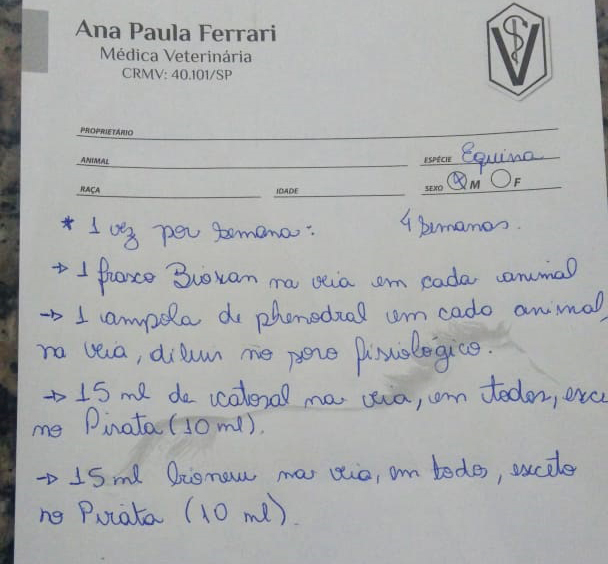 Ana Paula Ferrari
Médica Veterinária
CRMV: 40.101/SP
PROPRIETÁRIO
ANIMAL ESPÉCIE Equina
RAÇA IDADE SEXO M F
* 1 vez por semana: 4 semanas.
→ 1 frasco Bioxan na veia em cada animal
→ 1 ampola de phenodral em cada animal,
na veia, diluir no soro fisiológico.
→ 15 ml de catosal na veia, em todos, exce
no Pirata (10 ml).
→ 15 ml na veia, em todos, exceto
no Pirata (10 ml).